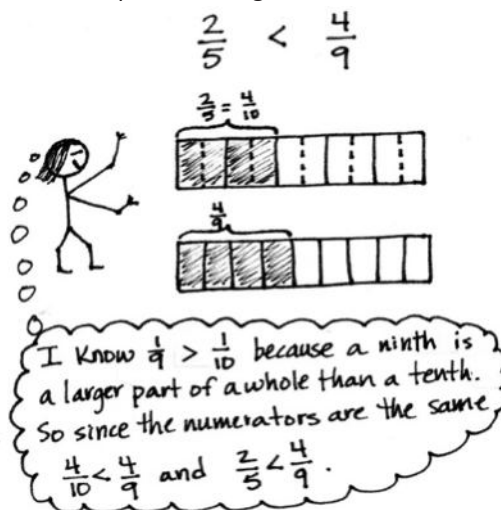 2/5 < 4/9
2/5 = 4/10
4/9
I know 1/9 > 1/10 because a ninth is
a larger part of a whole than a tenth.
So since the numerators are the same,
4/10 < 4/9 and 2/5 < 4/9.